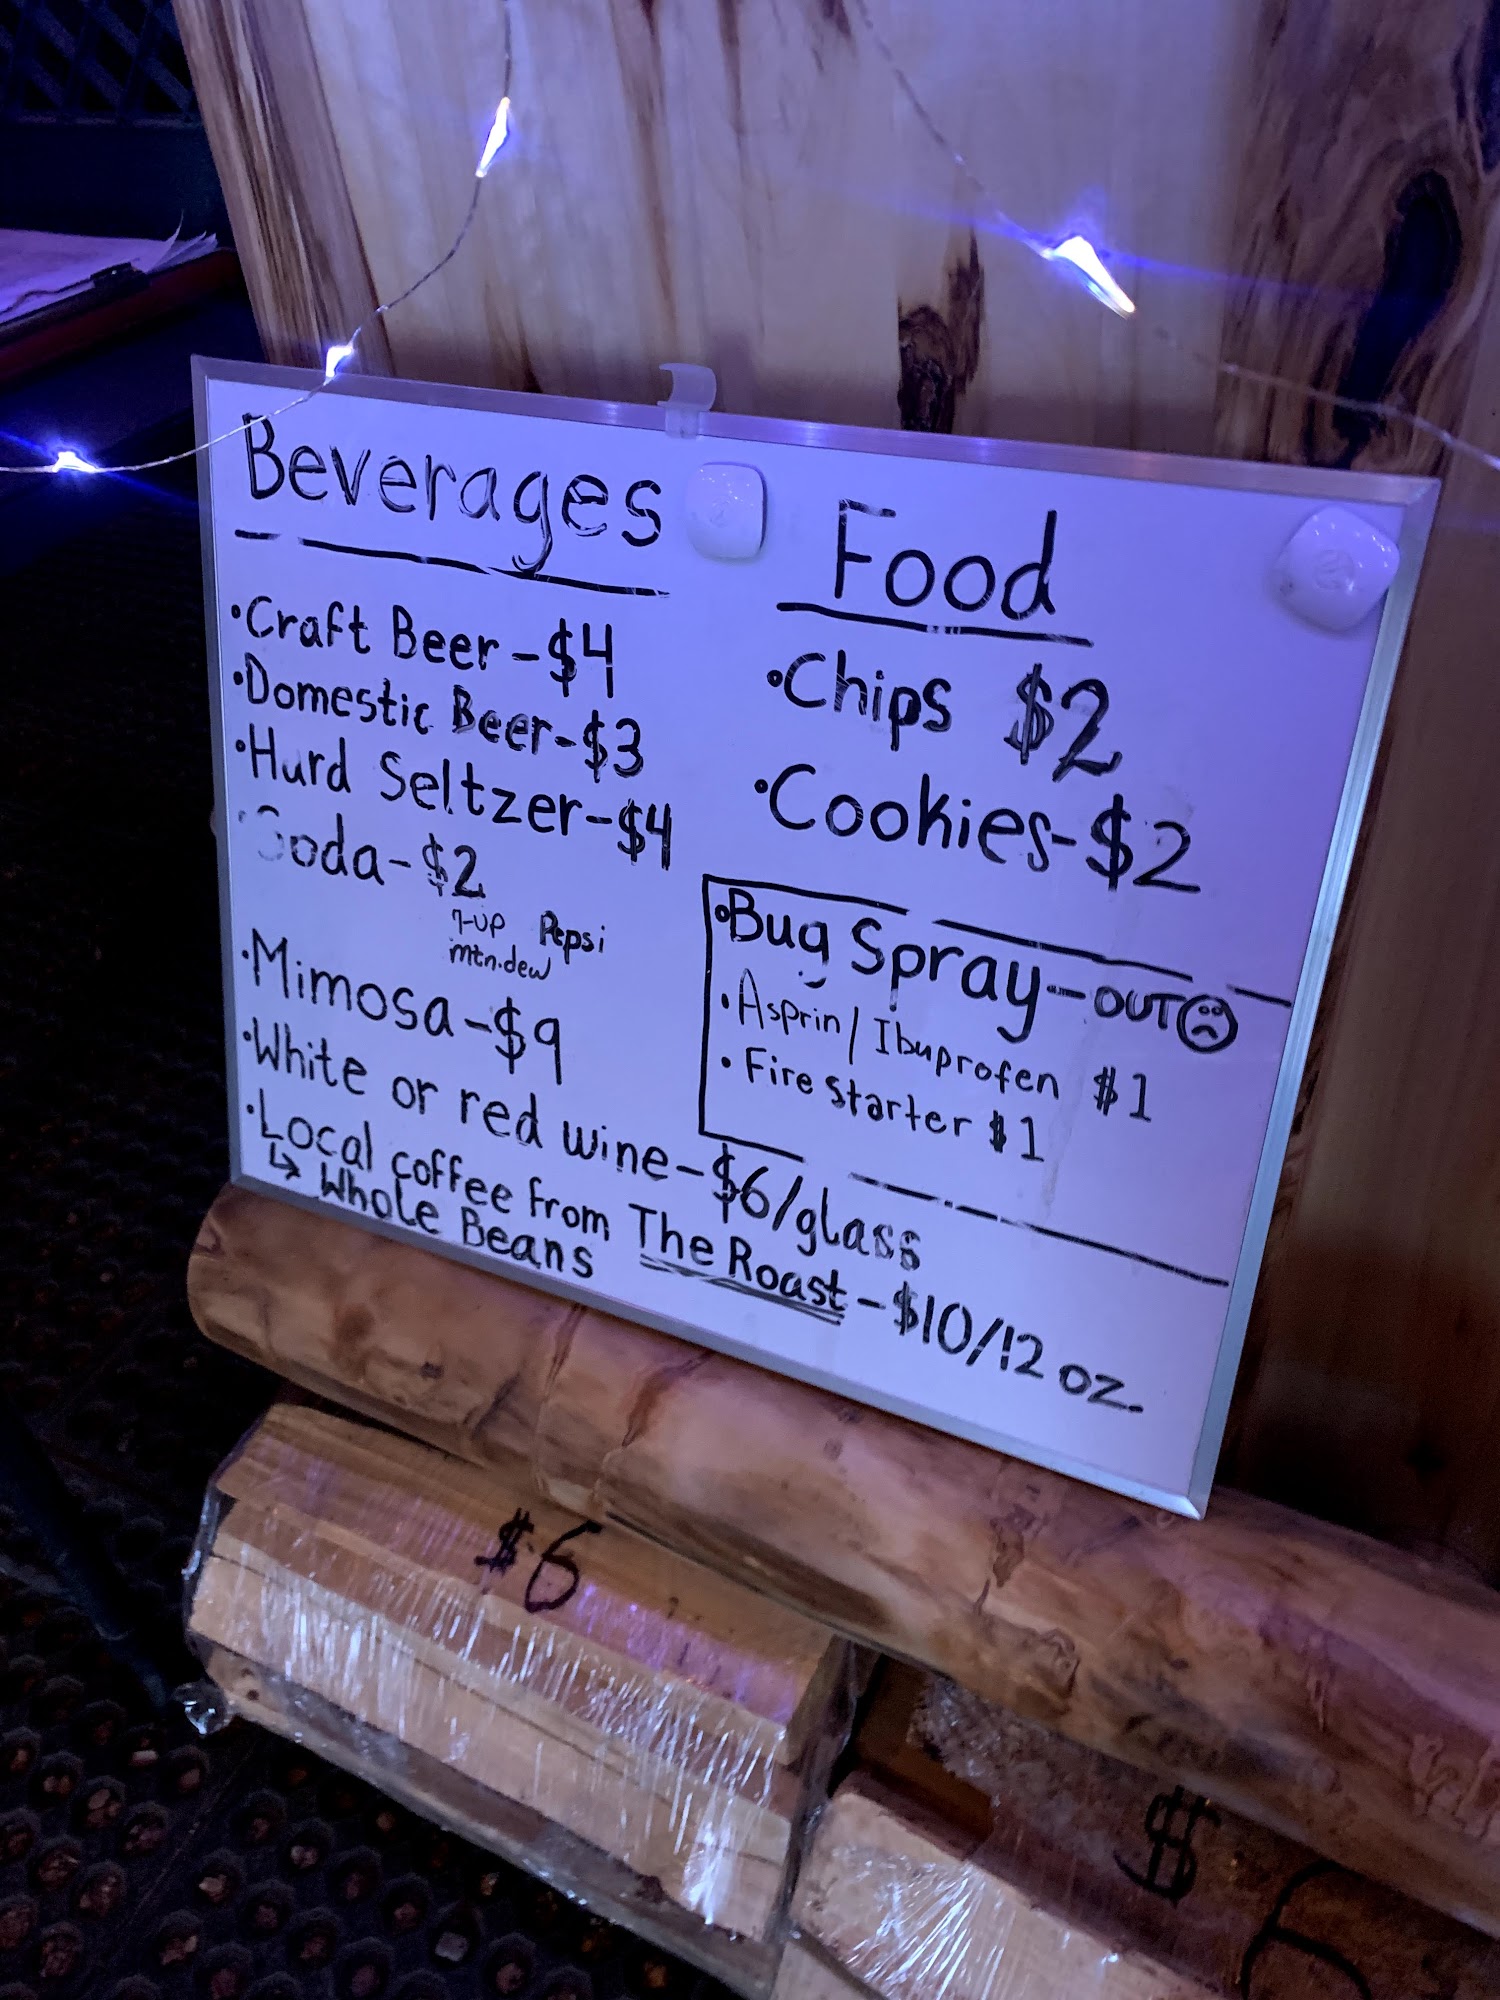 Beverages
• Craft Beer - $4
• Domestic Beer - $3
• Hard Seltzer - $4
• Soda - $2
7-UP Pepsi
mtn.dew
• Mimosa - $9
• White or red wine - $6/glass
• Local coffee from The Roast - $10/12 oz.
↳ Whole Beans
Food
• Chips $2
• Cookies - $2
• Bug Spray - OUT ☹
• Asprin/Ibuprofen $1
• Fire Starter $1
$6
$6